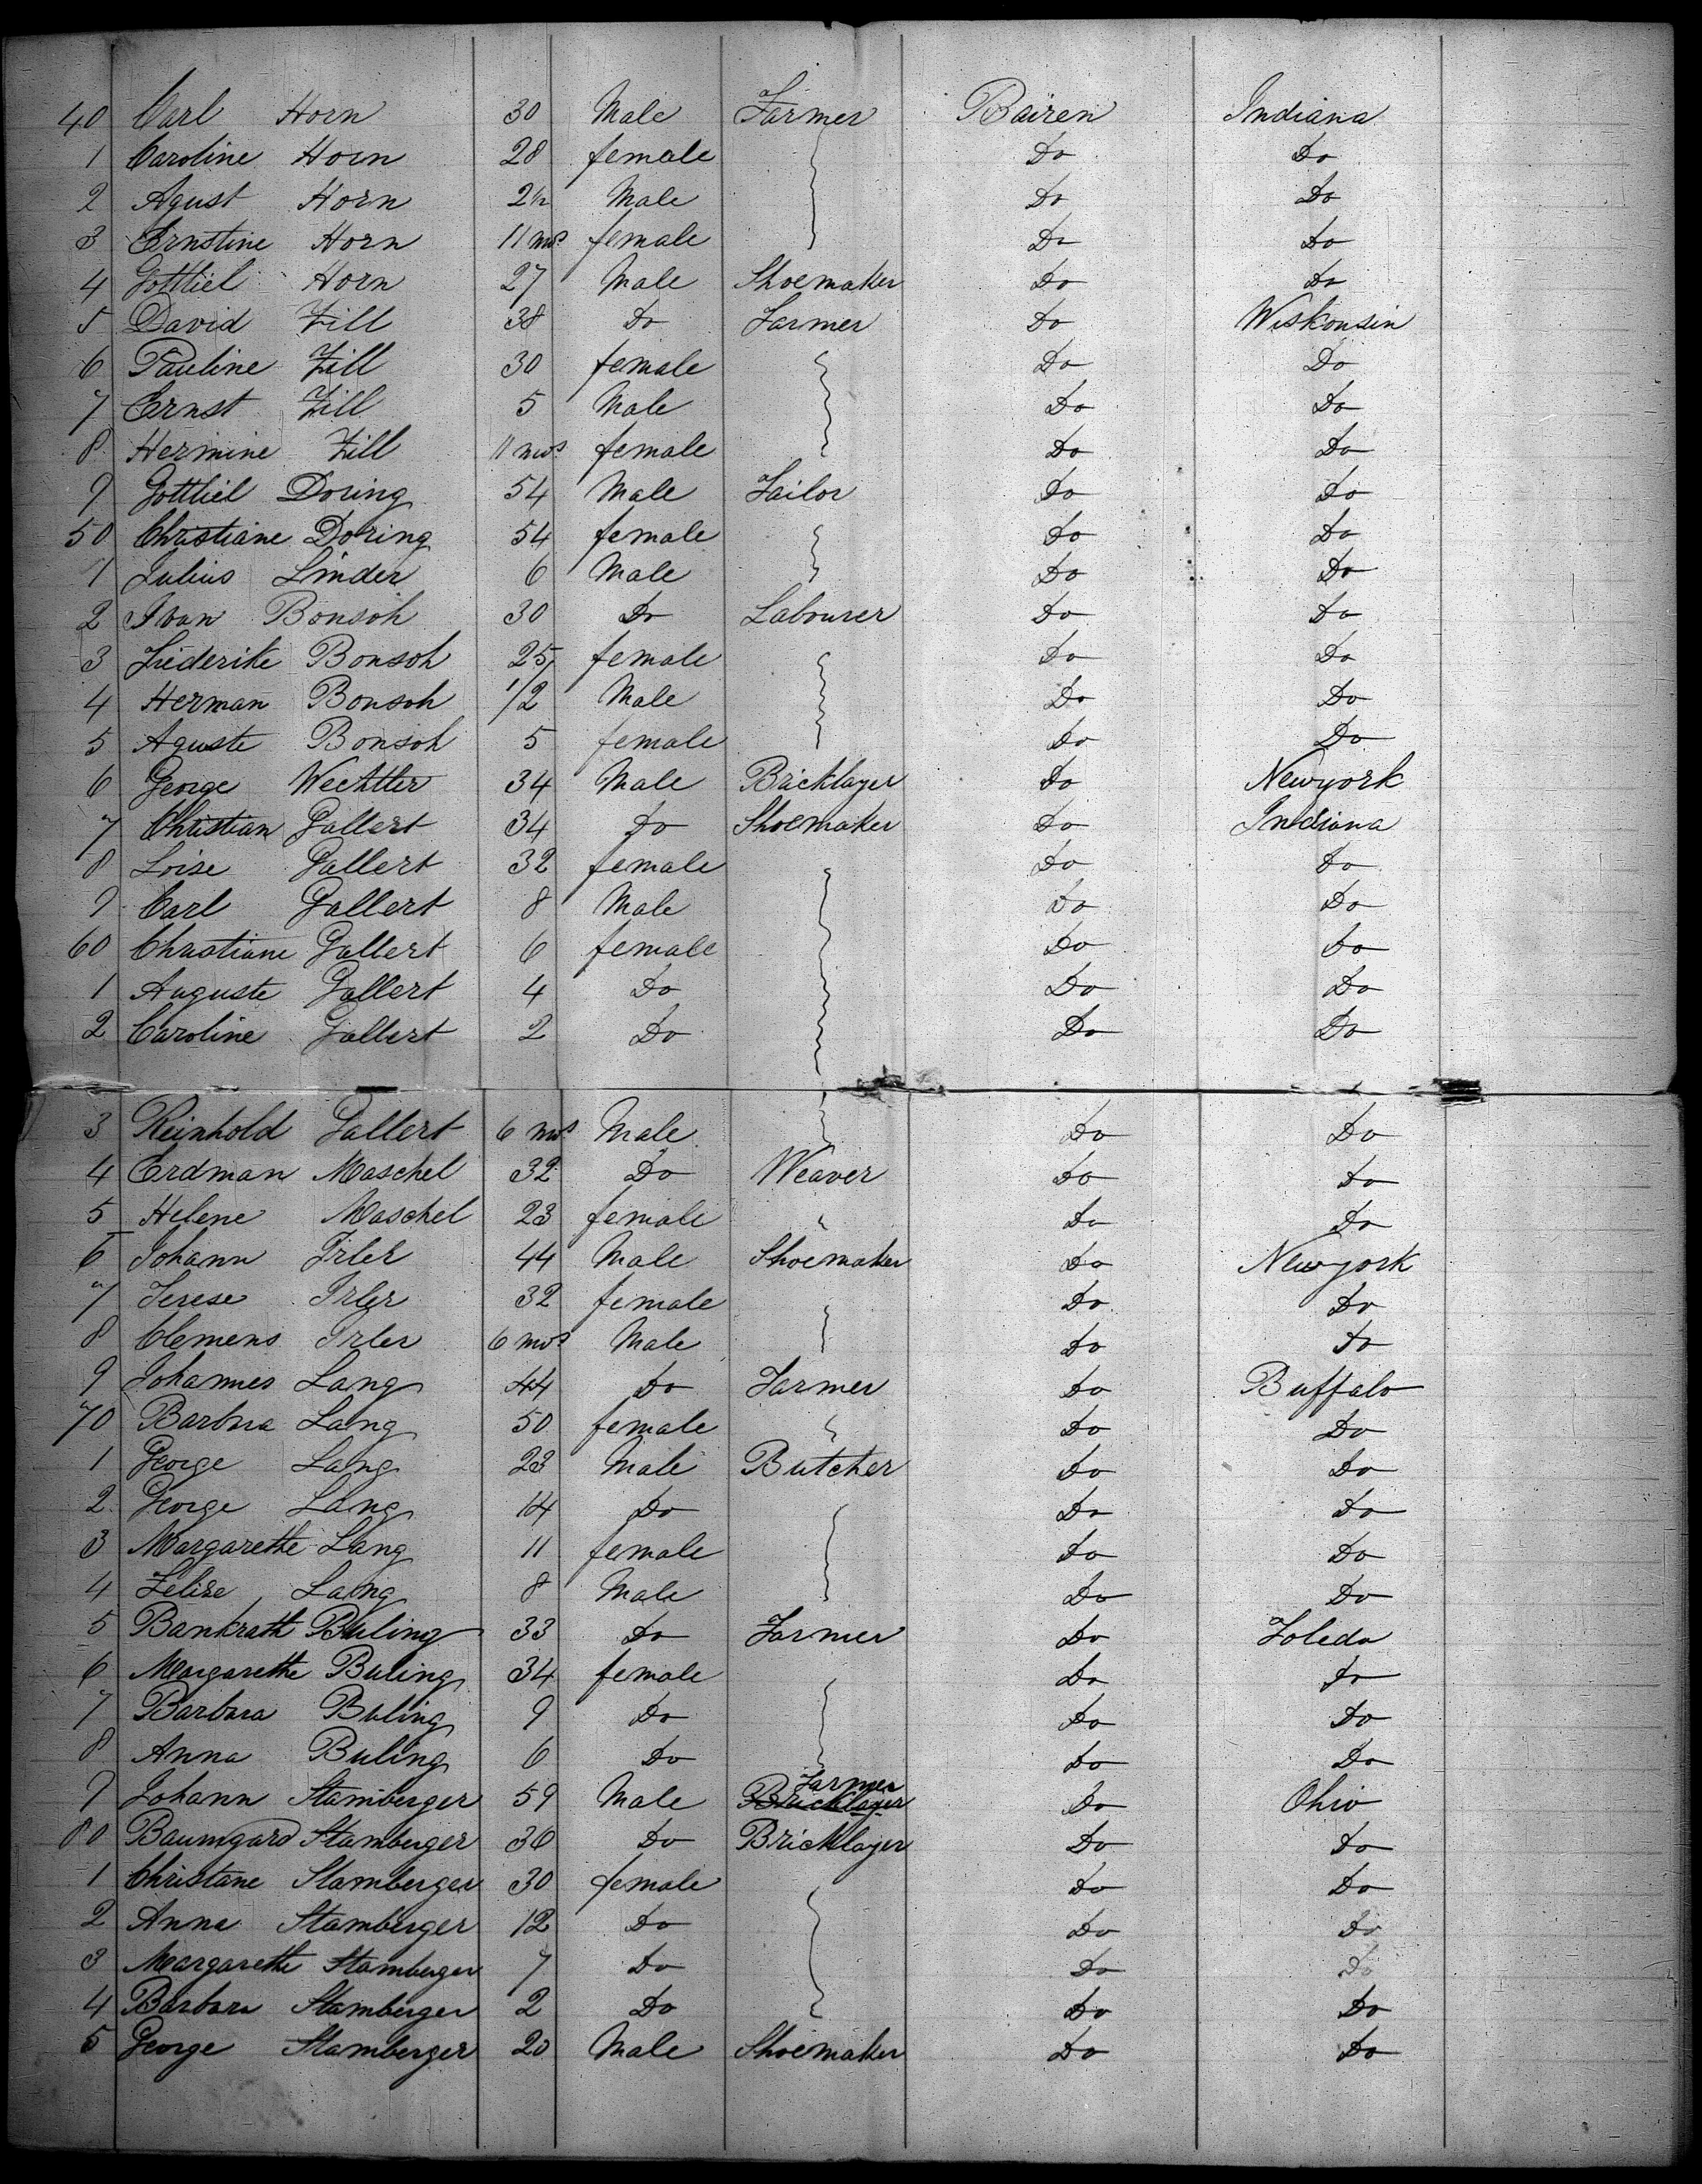 40 Carl Horn 30 Male Farmer Bairen Indiana
1 Caroline Horn 28 female Do Do
2 Agust Horn 2½ Male Do Do
3 Ernstine Horn 11 mos female Do Do
4 Gottliel Horn 27 Male Shoemaker Do Do
5 David Zill 38 Do Farmer Do Wiskonsin
6 Pauline Zill 30 female Do Do
7 Ernst Zill 5 Male Do Do
8 Hermine Zill 11 mos female Do Do
9 Gottliel Doring 54 Male Tailor Do Do
50 Christiane Doring 54 female Do Do
1 Julius Linder 6 Male Do Do
2 Ivan Bonsoh 30 Do Labourer Do Do
3 Friederike Bonsoh 25 female Do Do
4 Herman Bonsoh 1/2 Male Do Do
5 Aguste Bonsoh 5 female Do Do
6 George Wechtler 34 Male Bricklayer Do Newyork
7 Christian Gallert 34 Do Shoemaker Do Indiana
8 Loise Gallert 32 female Do Do
9 Carl Gallert 8 Male Do Do
60 Christiane Gallert 6 female Do Do
1 Auguste Gallert 4 Do Do Do
2 Caroline Gallert 2 Do Do Do
3 Reinhold Gallert 6 mos Male Do Do
4 Erdman Maschel 32 Do Weaver Do Do
5 Helene Maschel 23 female Do Do
6 Johann Irler 44 Male Shoemaker Do Newyork
7 Terese Irler 32 female Do Do
8 Clemens Irler 6 mos Male Do Do
9 Johannes Lang 44 Do Farmer Do Buffalo
70 Barbra Lang 50 female Do Do
1 George Lang 23 Male Butcher Do Do
2 George Lang 14 Do Do Do
3 Margarethe Lang 11 female Do Do
4 Lang 8 Male Do Do
5 Bankrath Buling 33 Do Farmer Do Toledo
6 Margarethe Buling 34 female Do Do
7 Barbara Buling 9 Do Do Do
8 Anna Buling 6 Do Do Do
9 Johann Stamberger 59 Male Bricklayer Farmer Do Ohio
80 Baumgard Stamberger 36 Do Bricklayer Do Do
1 Christane Stamberger 30 female Do Do
2 Anna Stamberger 12 Do Do Do
3 Margarethe Stamberger 7 Do Do Do
4 Barbara Stamberger 2 Do Do Do
5 George Stamberger 20 Male Shoemaker Do Do